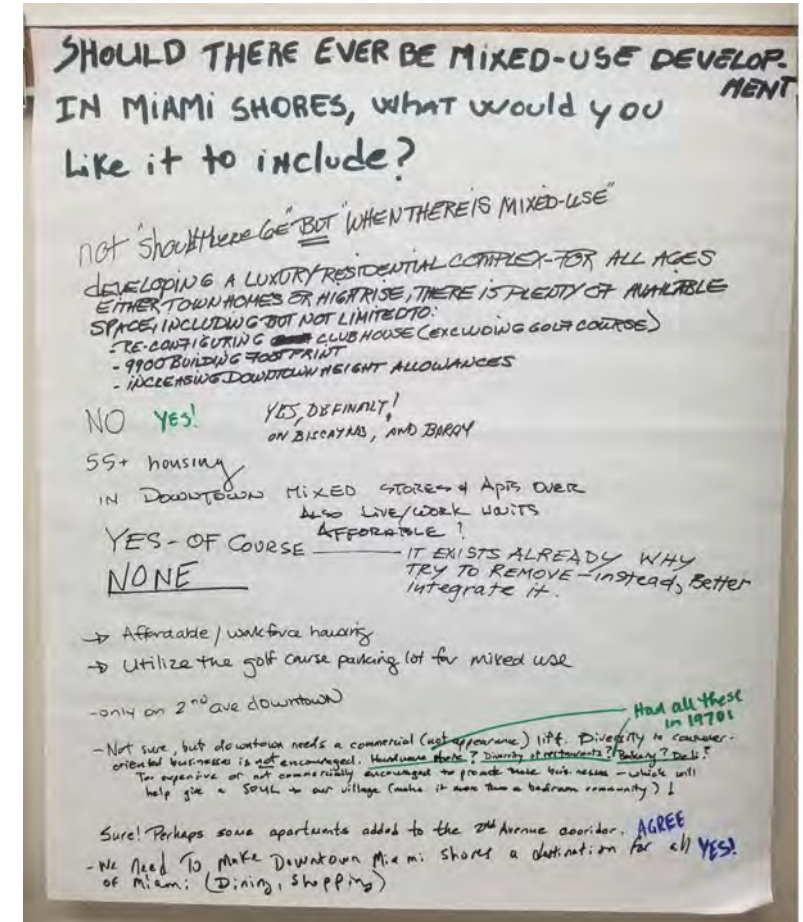 SHOULD THERE EVER BE MIXED-USE DEVELOP-
MENT
IN MIAMI SHORES, WHAT would you
Like it to include?
not "should there be" BUT "WHEN THERE IS MIXED-USE"
DEVELOPING A LUXURY RESIDENTIAL COMPLEX-FOR ALL AGES
EITHER TOWN HOMES OR HIGHRISE, THERE IS PLENTY OF AVAILABLE
SPACE, INCLUDING BUT NOT LIMITED TO:
- RE-CONFIGURING CLUBHOUSE (EXCLUDING GOLF COURSE)
- 9900 BUILDING FOOTPRINT
- INCREASING DOWNTOWN HEIGHT ALLOWANCES
NO YES! YES, DEFINALT!
ON BISCAYNE, AND BARRY
55+ housing
IN DOWNTOWN MIXED STORES & APTS OVER
ALSO LIVE/WORK UNITS
AFFORABLE?
YES - OF COURSE — IT EXISTS ALREADY WHY
TRY TO REMOVE - instead, Better
integrate it.
NONE
→ Affordable / workforce housing
→ Utilize the golf course parking lot for mixed use
- only on 2nd ave downtown
Had all these
in 1970s
- Not sure, but downtown needs a commercial (not appearance) lift. Diversity in consumer-
oriented businesses is not encouraged. Hardware store? Diversity of restaurants? Bakery? Deli?
Too expensive or not commercially encouraged to promote these businesses - which will
help give a SOUL to our village (make it more than a bedroom community)!
Sure! Perhaps some apartments added to the 2nd Avenue cooridor. AGREE
- We Need To Make Downtown Miami shores a destination for all YES!
of Miami (Dining, Shopping)